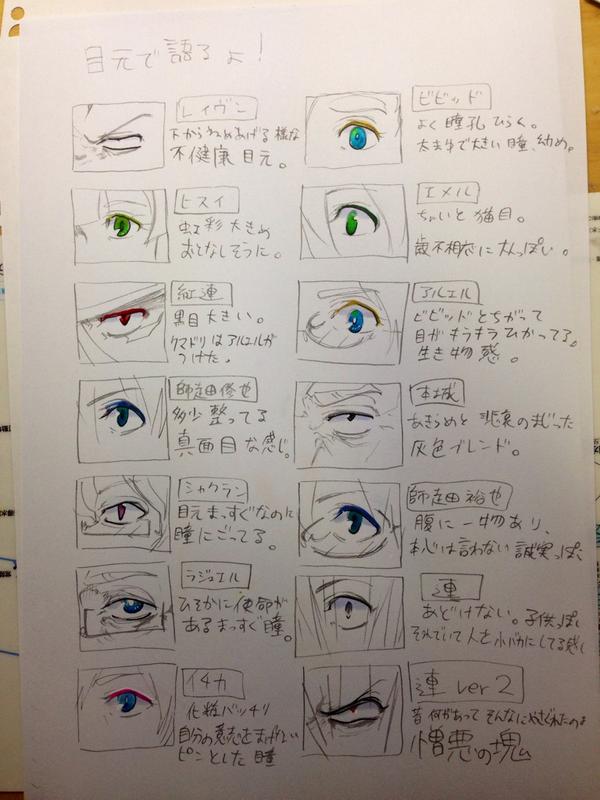 目元で語るよ!
レイヴン
下からねめあげる様な
不健康目元。
ビビッド
よく瞳孔ひらく。
大きい瞳、幼め。
ヒスイ
虹彩大きめ
おとなしそうに。
エメル
ちょいと猫目。
歳不相応に大人っぽい。
紅連
黒目大きい。
クマドリはアルエルが
つけた。
アルエル
ビビッドとちがって
目がキラキラひかってる。
生き物感。
師走田修也
多少整ってる
真面目な感じ。
本城
あきらめと悲哀のまじった
灰色ブレンド。
シャクラン
目元まっすぐなのに
瞳にごってる。
師走田裕也
腹に一物あり、
本心は言わない誠実っぽ
ラジエル
ひそかに使命が
あるまっすぐ瞳。
連
あどけない。子供っぽ
それでいて人を小バカにしてる感じ
イチカ
化粧バッチリ
自分の意志をまげない
ピンとした瞳
連 ver2
昔何があってそんなにやさぐれたのよ
憎悪の塊